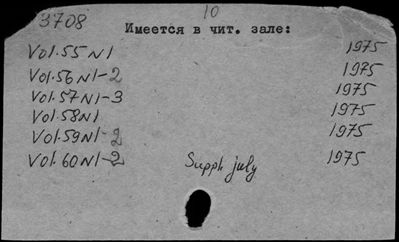 3708
10
Имеется в чит. зале:
Vol.55 N1 1975
Vol.56 N1-2 1975
Vol.57 N1-3 1975
Vol.58 N1 1975
Vol.59 N1-2 1975
Vol.60 N1-2 Suppl. july 1975